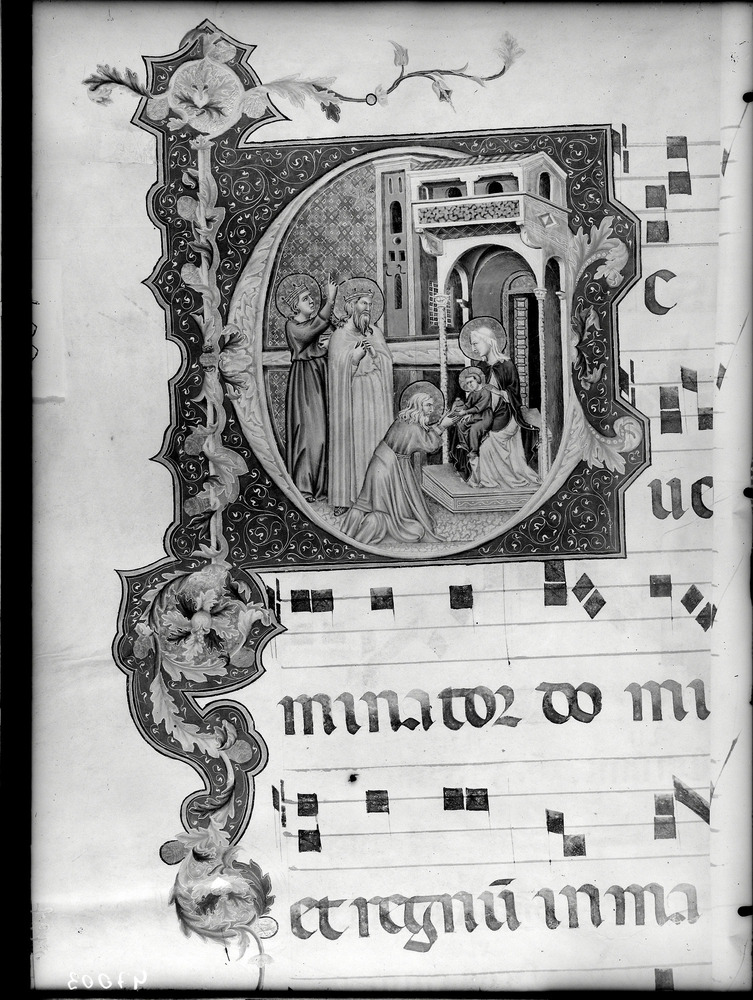 c
uc
minator do mi
et regnū in ma
47003